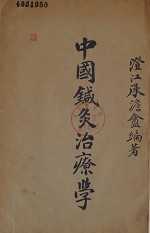 澄江承澹盦編著
中國鍼灸治療学